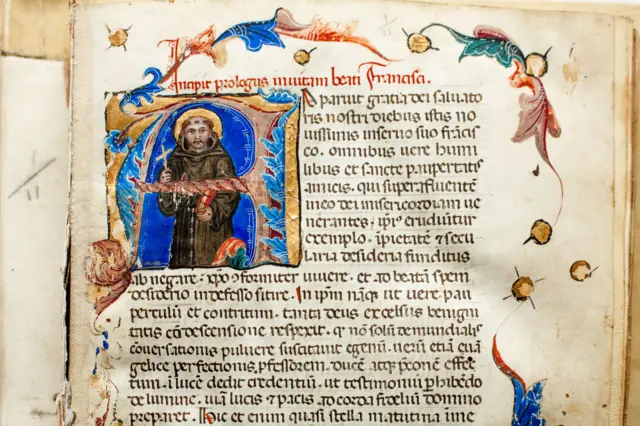 Incipit prologus in uitam beati Francisci.
Aparuit gratia dei saluato
ris nostri diebus istis no
uissimis in seruo suo francis
co. omnibus uere humi
libus et sancte paupertatis
amicis. qui superafluente
in eo dei misericordiam ue
nerantes. ipĩ9 erudiuntur
exemplo. ĩpietatẽ ⁊ secu
laria desideria funditus
ab negare. xp̃o ↄformiter uiuere. et ad beatã spem
desiderio indefesso sitire. In ip̃m nãq; ut uere pau
perculũ et contritum. tanta deus excelsus benigni
tatis cõdescensione respexit. qđ nõ solũ de mundialis
cõuersationis puluere suscitauit egenũ. uerũ etiã euã
gelice perfectionis ꝓfessorem. ducẽ atq; p̃conẽ effec
tum. ĩ lucẽ dedit credentiũ. ut testimoniũ ꝑhibẽdo
de lumine. uiã lucis et pacis ad corda fideliũ domino
preparet. Hic et enim quasi stella matutina ĩ me